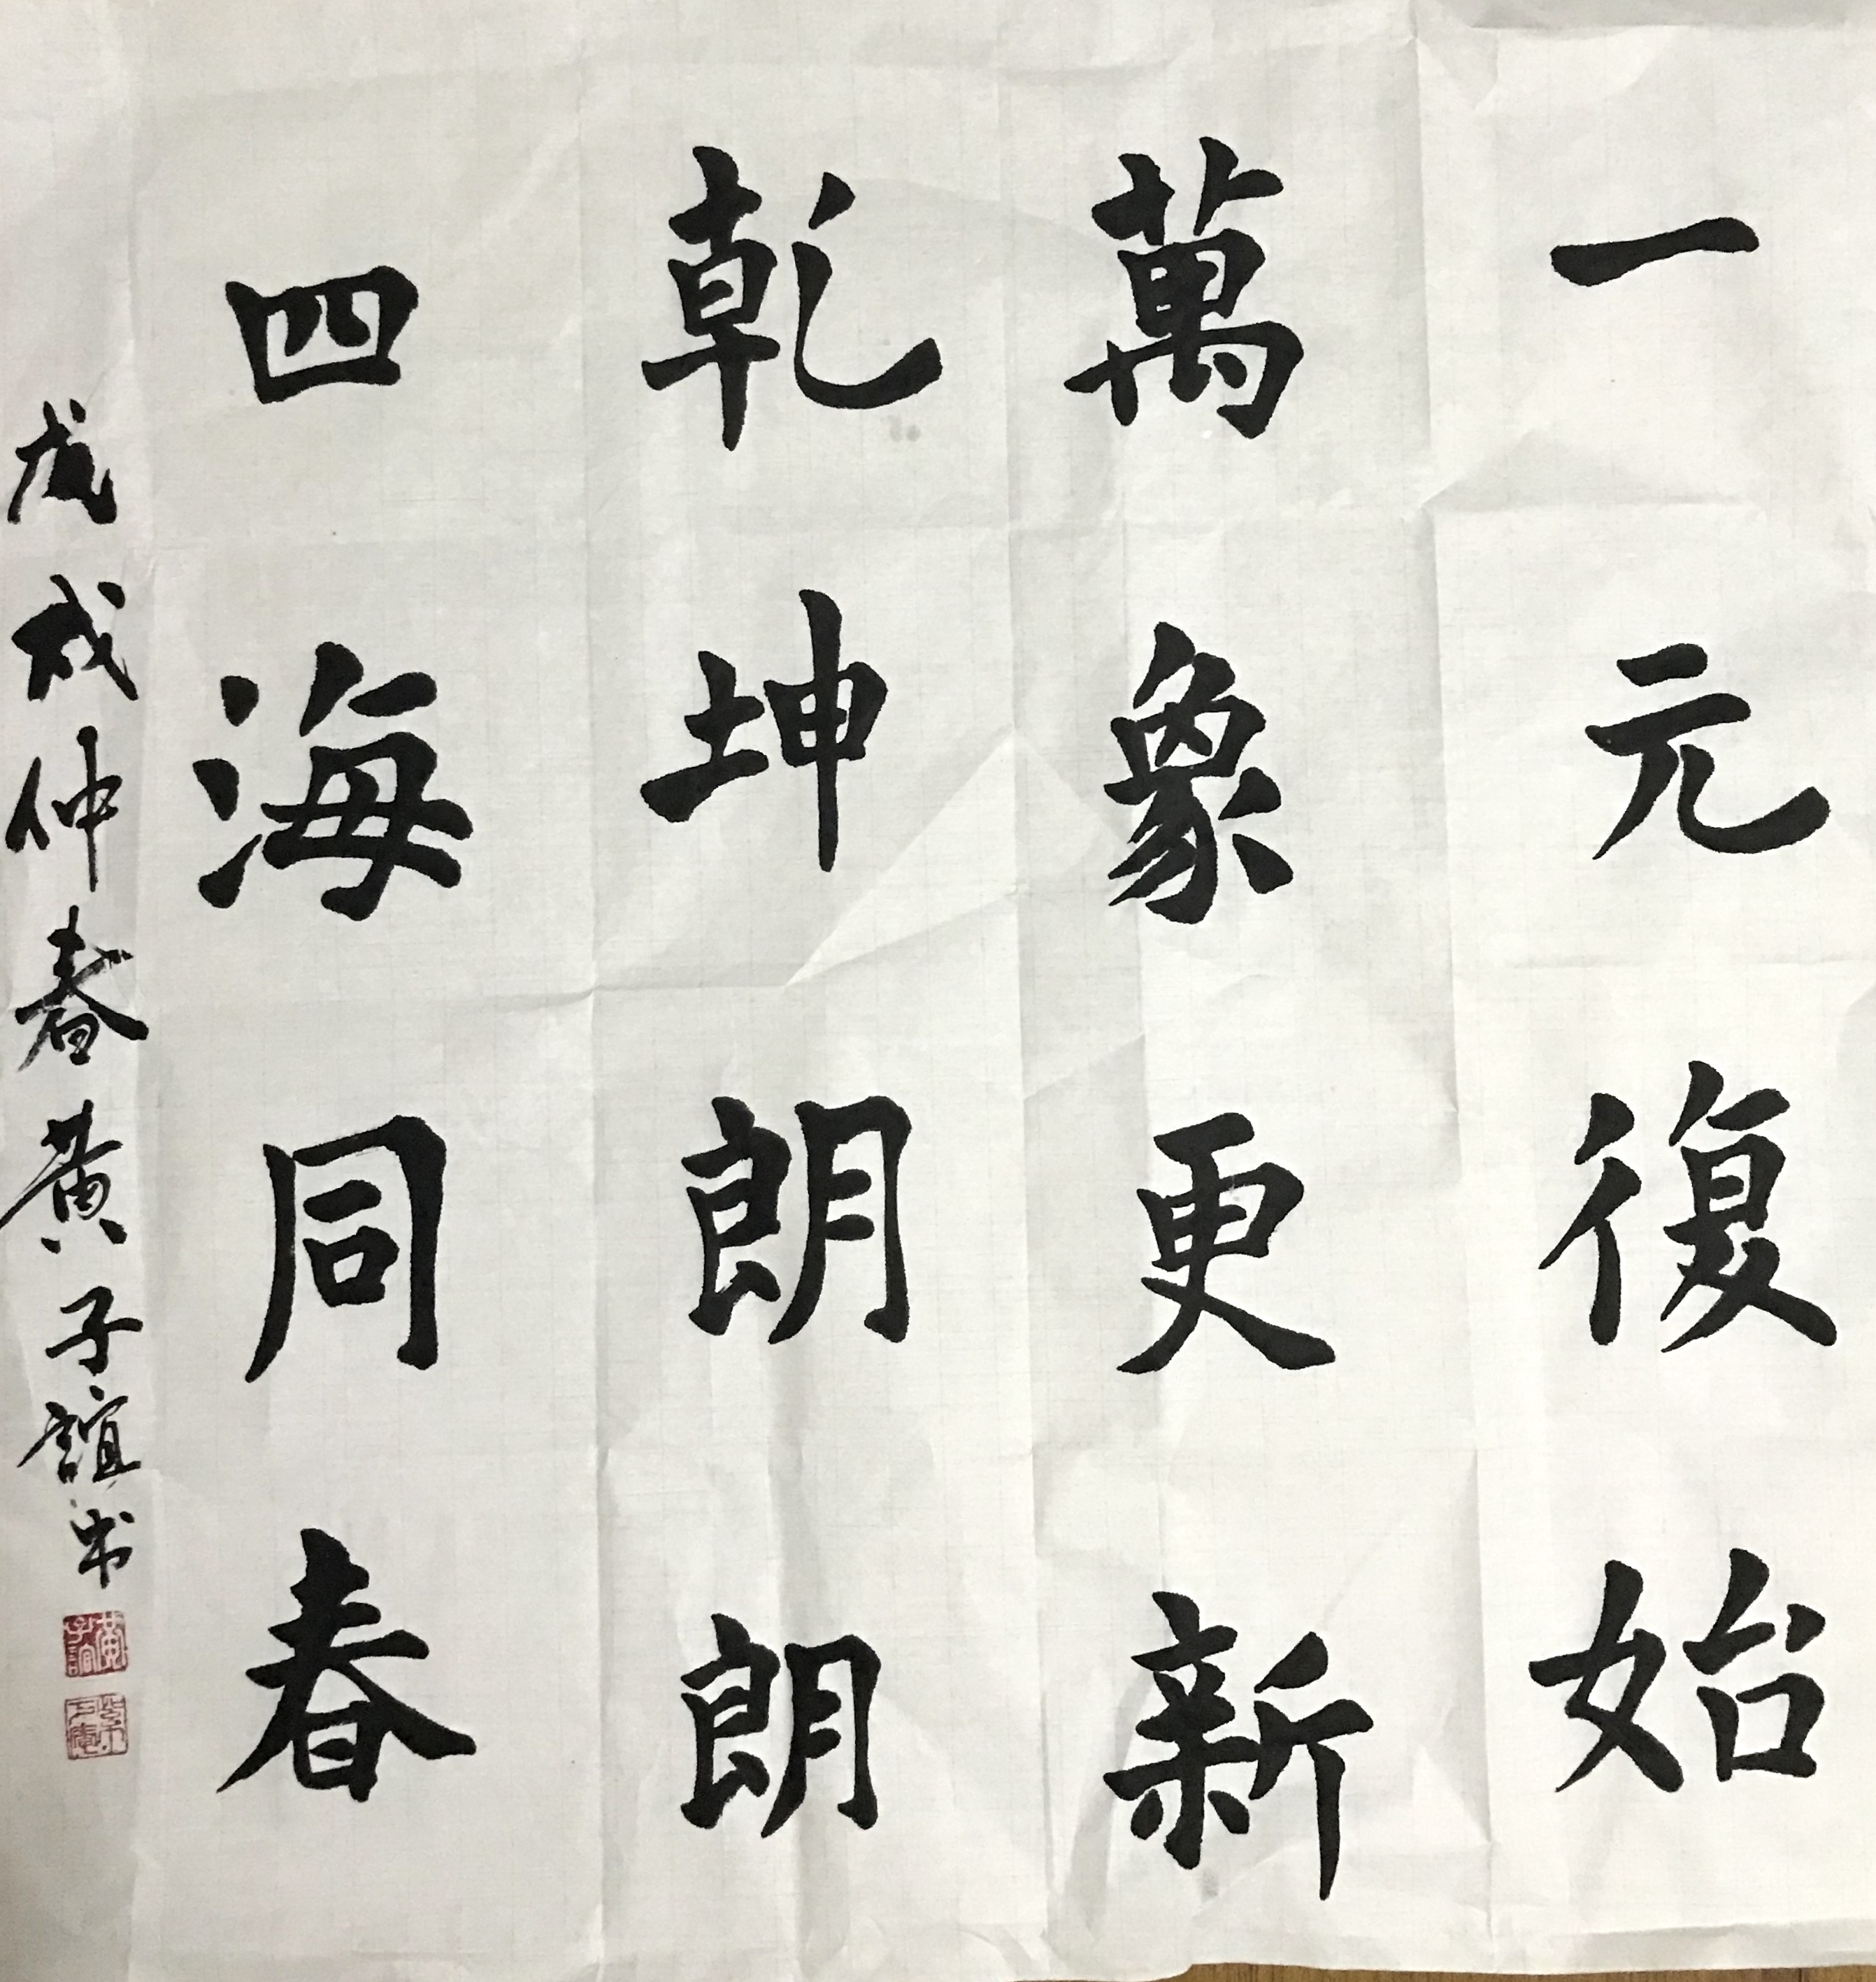 一元復始
萬象更新
乾坤朗朗
四海同春
戊戌仲春黄子誼书
黄子誼